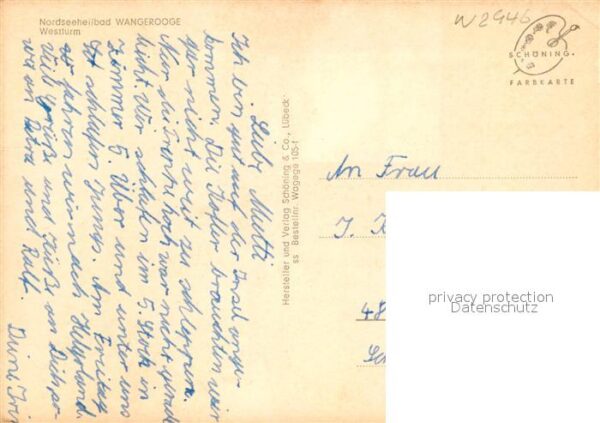 Nordseeheilbad WANGEROOGE
Westturm
W 2946
SCHÖNING
FARBKARTE
Liebe Mutti
Ich bin gut auf der Insel ange-
kommen. Die Koffer brauchten wir
gar nicht weit zu schleppen.
Nur die war nicht grade
leicht. Wir schlafen im 5. Stock in
Zimmer 5. Über und unter uns
schlafen Jungs. Am Freitag
fahren wir nach Helgoland.
Viele Grüße und Küße an
wa an Petra und Rolf.
Hersteller und Verlag Schöning & Co., Lübeck
ss Bestellnr. Wagege 105-f
An Frau
J. K
48
Sc
privacy protection
Datenschutz